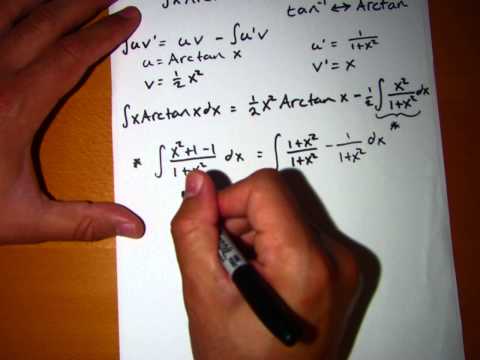 ∫xArc
tan⁻¹ ↔ Arctan
∫uv' = uv - ∫u'v
u = Arctan x
u' = 1/(1+x²)
v = ½x²
v' = x
∫xArctanxdx = ½x² Arctan x - ½∫x²/(1+x²)dx
*
* ∫(x²+1-1)/(1+x²) dx = ∫(1+x²)/(1+x²) - 1/(1+x²) dx